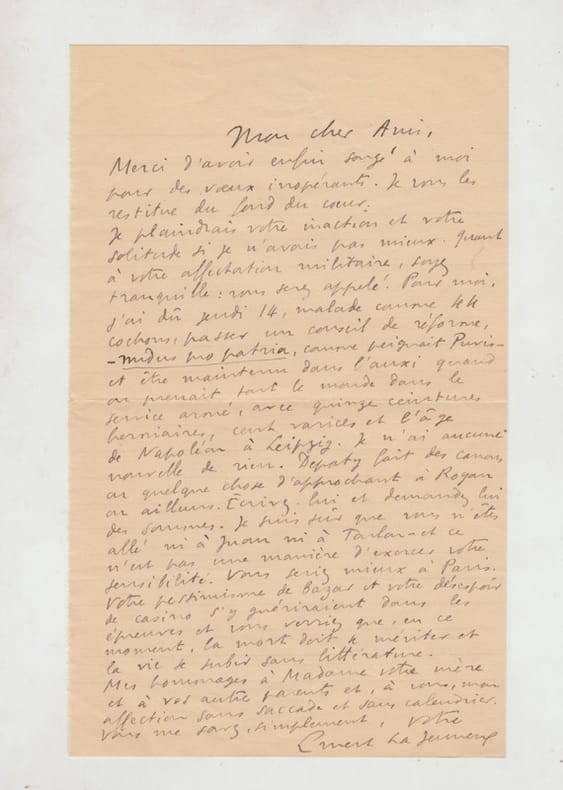 Mon cher Ami,
Merci d'avoir enfin songé à moi
pour des vœux inopérants. Je vous les
restitue du fond du cœur.
Je plaindrais votre inaction et votre
solitude si je n'avais pas mieux. Quant
à votre affectation militaire, soyez
tranquille : vous serez appelé. Pour moi,
j'ai dû jeudi 14, malade comme 44
cochons, passer un conseil de réforme,
- nudus pro patria, comme peignait Puvis -
et être maintenu dans l'auxi quand
on prenait tout le monde dans le
service armé, avec quinze ceintures
herniaires, cent varices et l'âge
de Napoléon à Leipzig. Je n'ai aucune
nouvelle de rien. Depaty fait des canons
ou quelque chose d'approchant à Royan
ou ailleurs. Ecrivez lui et demandez lui
des sommes. Je suis sûr que vous n'êtes
allé ni à Juan ni à - et ce
n'est pas une manière d'exercer votre
sensibilité. Vous seriez mieux à Paris.
Votre pessimisme de bazar et votre désespoir
de casino s'y guériraient dans les
épreuves et vous verriez que, en ce
moment, la mort doit se mériter et
la vie se subir sans littérature.
Mes hommages à Madame votre mère
et à vos autre parents et, à vous, mon
affection sans saccade et sans calendrier.
Vous me savez, simplement, votre
Ernest La Jeunesse